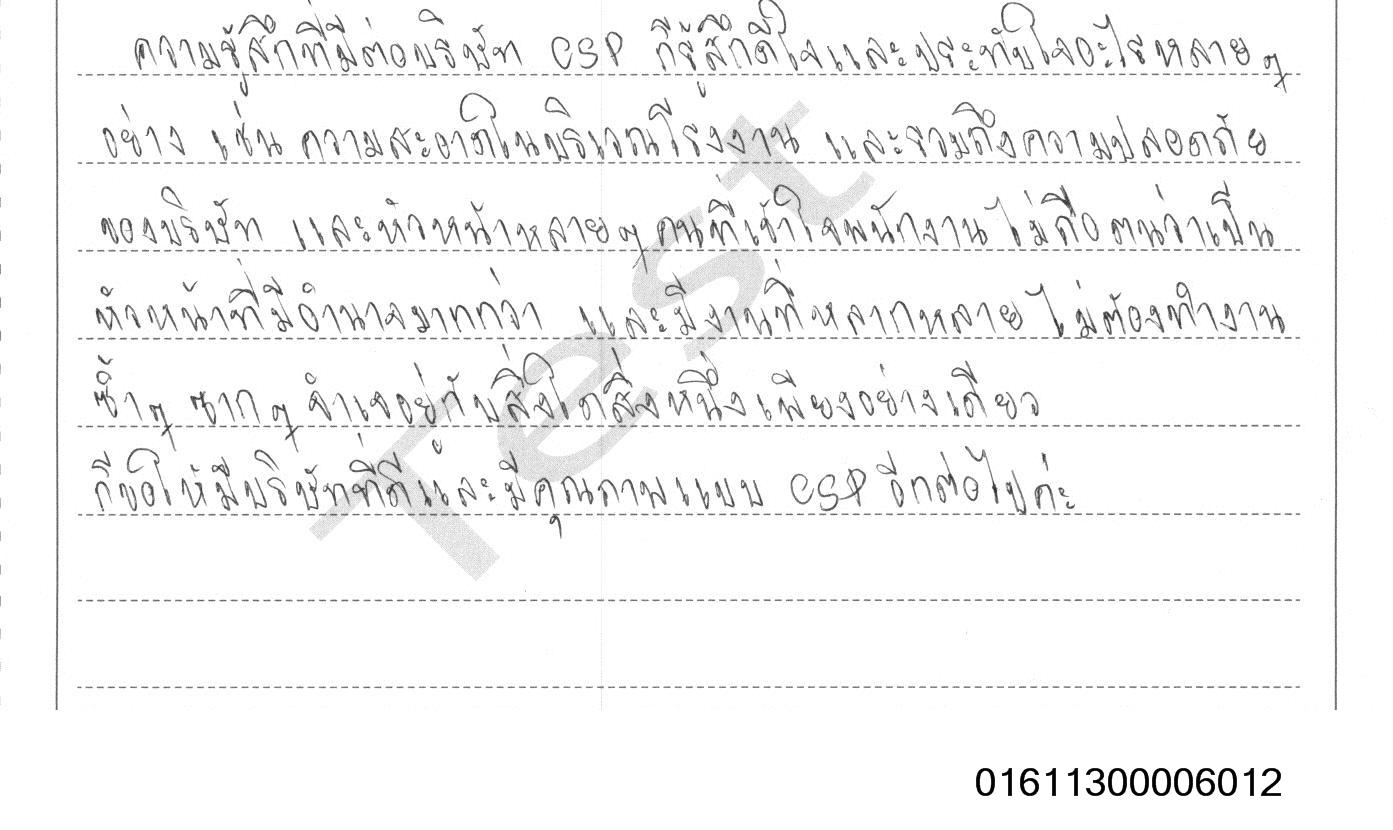 ความรู้สึกที่มีต่อบริษัท CSP ก็รู้สึกดีใจและประทับใจอะไรหลาย ๆ
อย่าง เช่น ความสะอาดในบริเวณโรงงาน และรวมถึงความปลอดภัย
ของบริษัท และหัวหน้าหลายๆ คนที่เข้าใจพนักงาน ไม่ถือตนว่าเป็น
หัวหน้าที่มีอำนาจมากกว่า และมีงานที่หลากหลาย ไม่ต้องทำงาน
ซ้ำๆ ซากๆ จำเจอยู่กับสิ่งใดสิ่งหนึ่งเพียงอย่างเดียว
ก็ขอให้มีบริษัทที่ดีและมีคุณภาพแบบ CSP อีกต่อไปค่ะ
Test
01611300006012